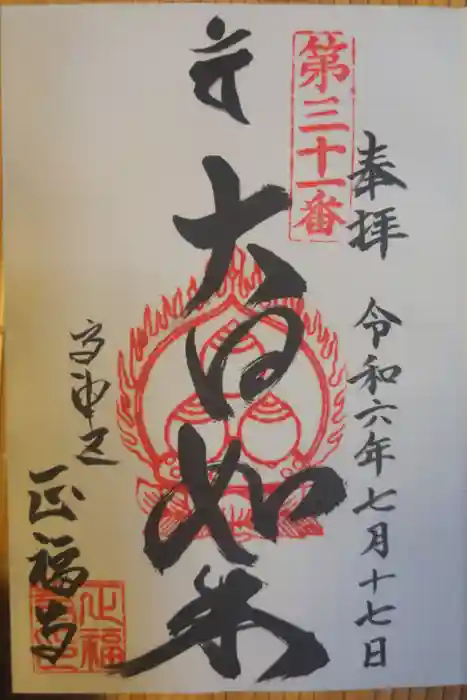 第三十一番
奉拝
令和六年七月十七日
大日如来
高中山
正福寺
正福寺印